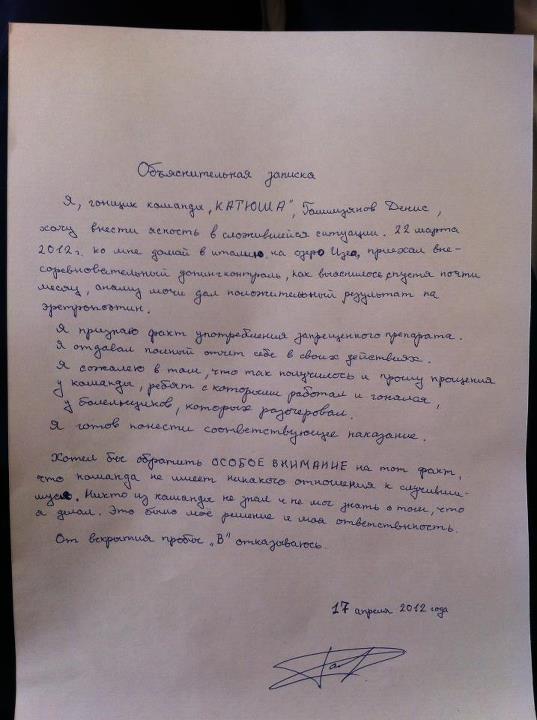 Объяснительная записка
Я, гонщик команды „КАТЮША", Галимзянов Денис,
хочу внести ясность в сложившейся ситуации. 22 марта
2012г. ко мне домой в италию, на озеро Изео, приехал вне-
соревновательный допингконтроль, как выяснилось, спустя почти
месяц, анализ мочи дал положительный результат на
эретропоэтин.
Я признаю факт употребления запрещенного препарата.
Я отдавал полный отчет себе в своих действиях.
Я сожалею в том, что так получилось и прошу прощения
у команды, ребят с которыми работал и гонялся,
у болельщиков, которых разочеровал.
Я готов понести соответствующие наказание.
Хотел бы обратить ОСОБОЕ ВНИМАНИЕ на тот факт,
что команда не имеет никакого отношения к случивши-
муся. Никто из команды не знал и не мог знать о том, что
я делал. Это было моё решение и моя ответственность.
От вскрытия пробы „В" отказываюсь.
17 апреля 2012 года